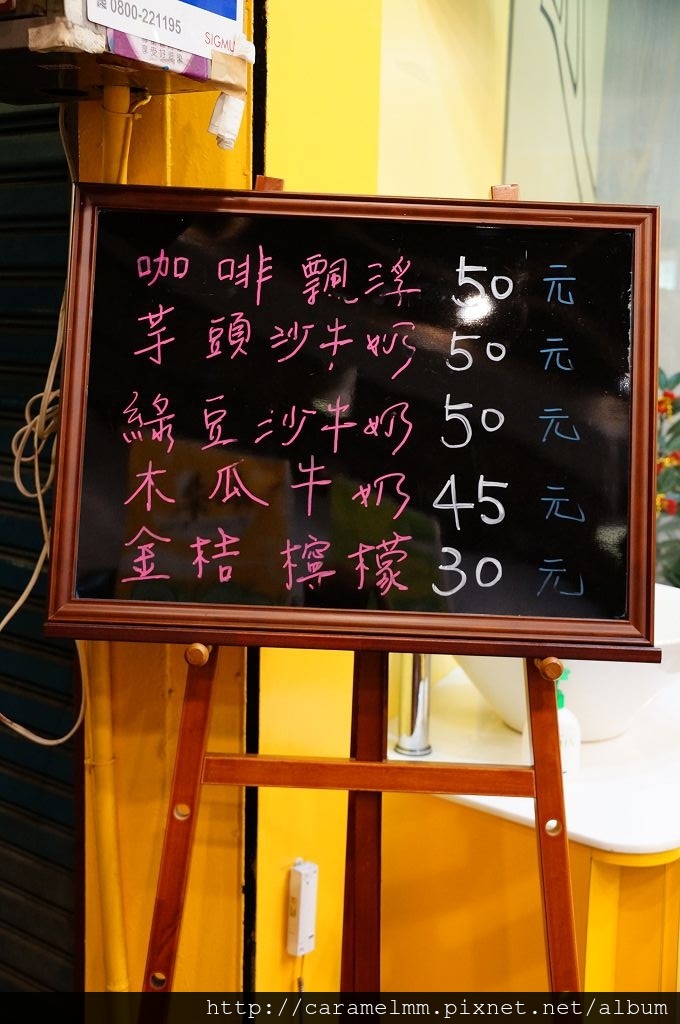 0800-221195
SIGMU
享受好
咖啡飄浮 50 元
芋頭沙牛奶 50 元
綠豆沙牛奶 50 元
木瓜牛奶 45 元
金桔檸檬 30 元
http://caramelmm.pixnet.net/album